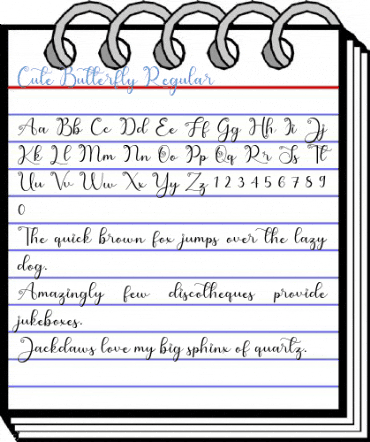 Cute Butterfly Regular
Aa Bb Cc Dd Ee Ff Gg Hh Ii Jj
Kk Ll Mm Nn Oo Pp Qq Rr Ss Tt
Uu Vv Ww Xx Yy Zz 1 2 3 4 5 6 7 8 9
0
The quick brown fox jumps over the lazy
dog.
Amazingly few discotheques provide
jukeboxes.
Jackdaws love my big sphinx of quartz.